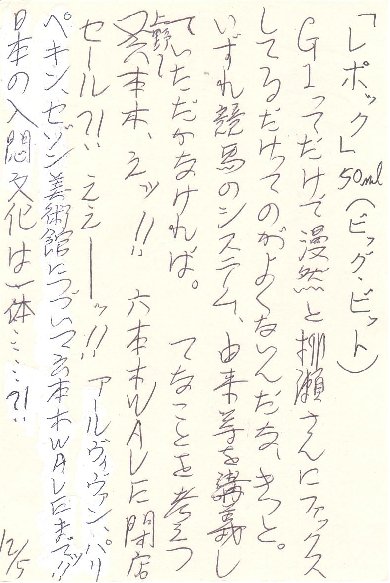 「レポック」50ml(ビッグ・ビット)
G1ってだけで漫然と柳瀬さんにファックス
してるだけってのがよくないんだな、きっと。
いずれ競馬のシステム、由来等を講義し
ていただかなければ。 てなことを考えつ
つ上野〜六本木、えッ!! 六本木WAVE閉店
セール?!! ええーーッ!!! アールヴィヴァン、パリ
ペキン、セゾン美術館につづいて六本木WAVEまで?!!
日本の入悶文化は一体……?!!
12/5